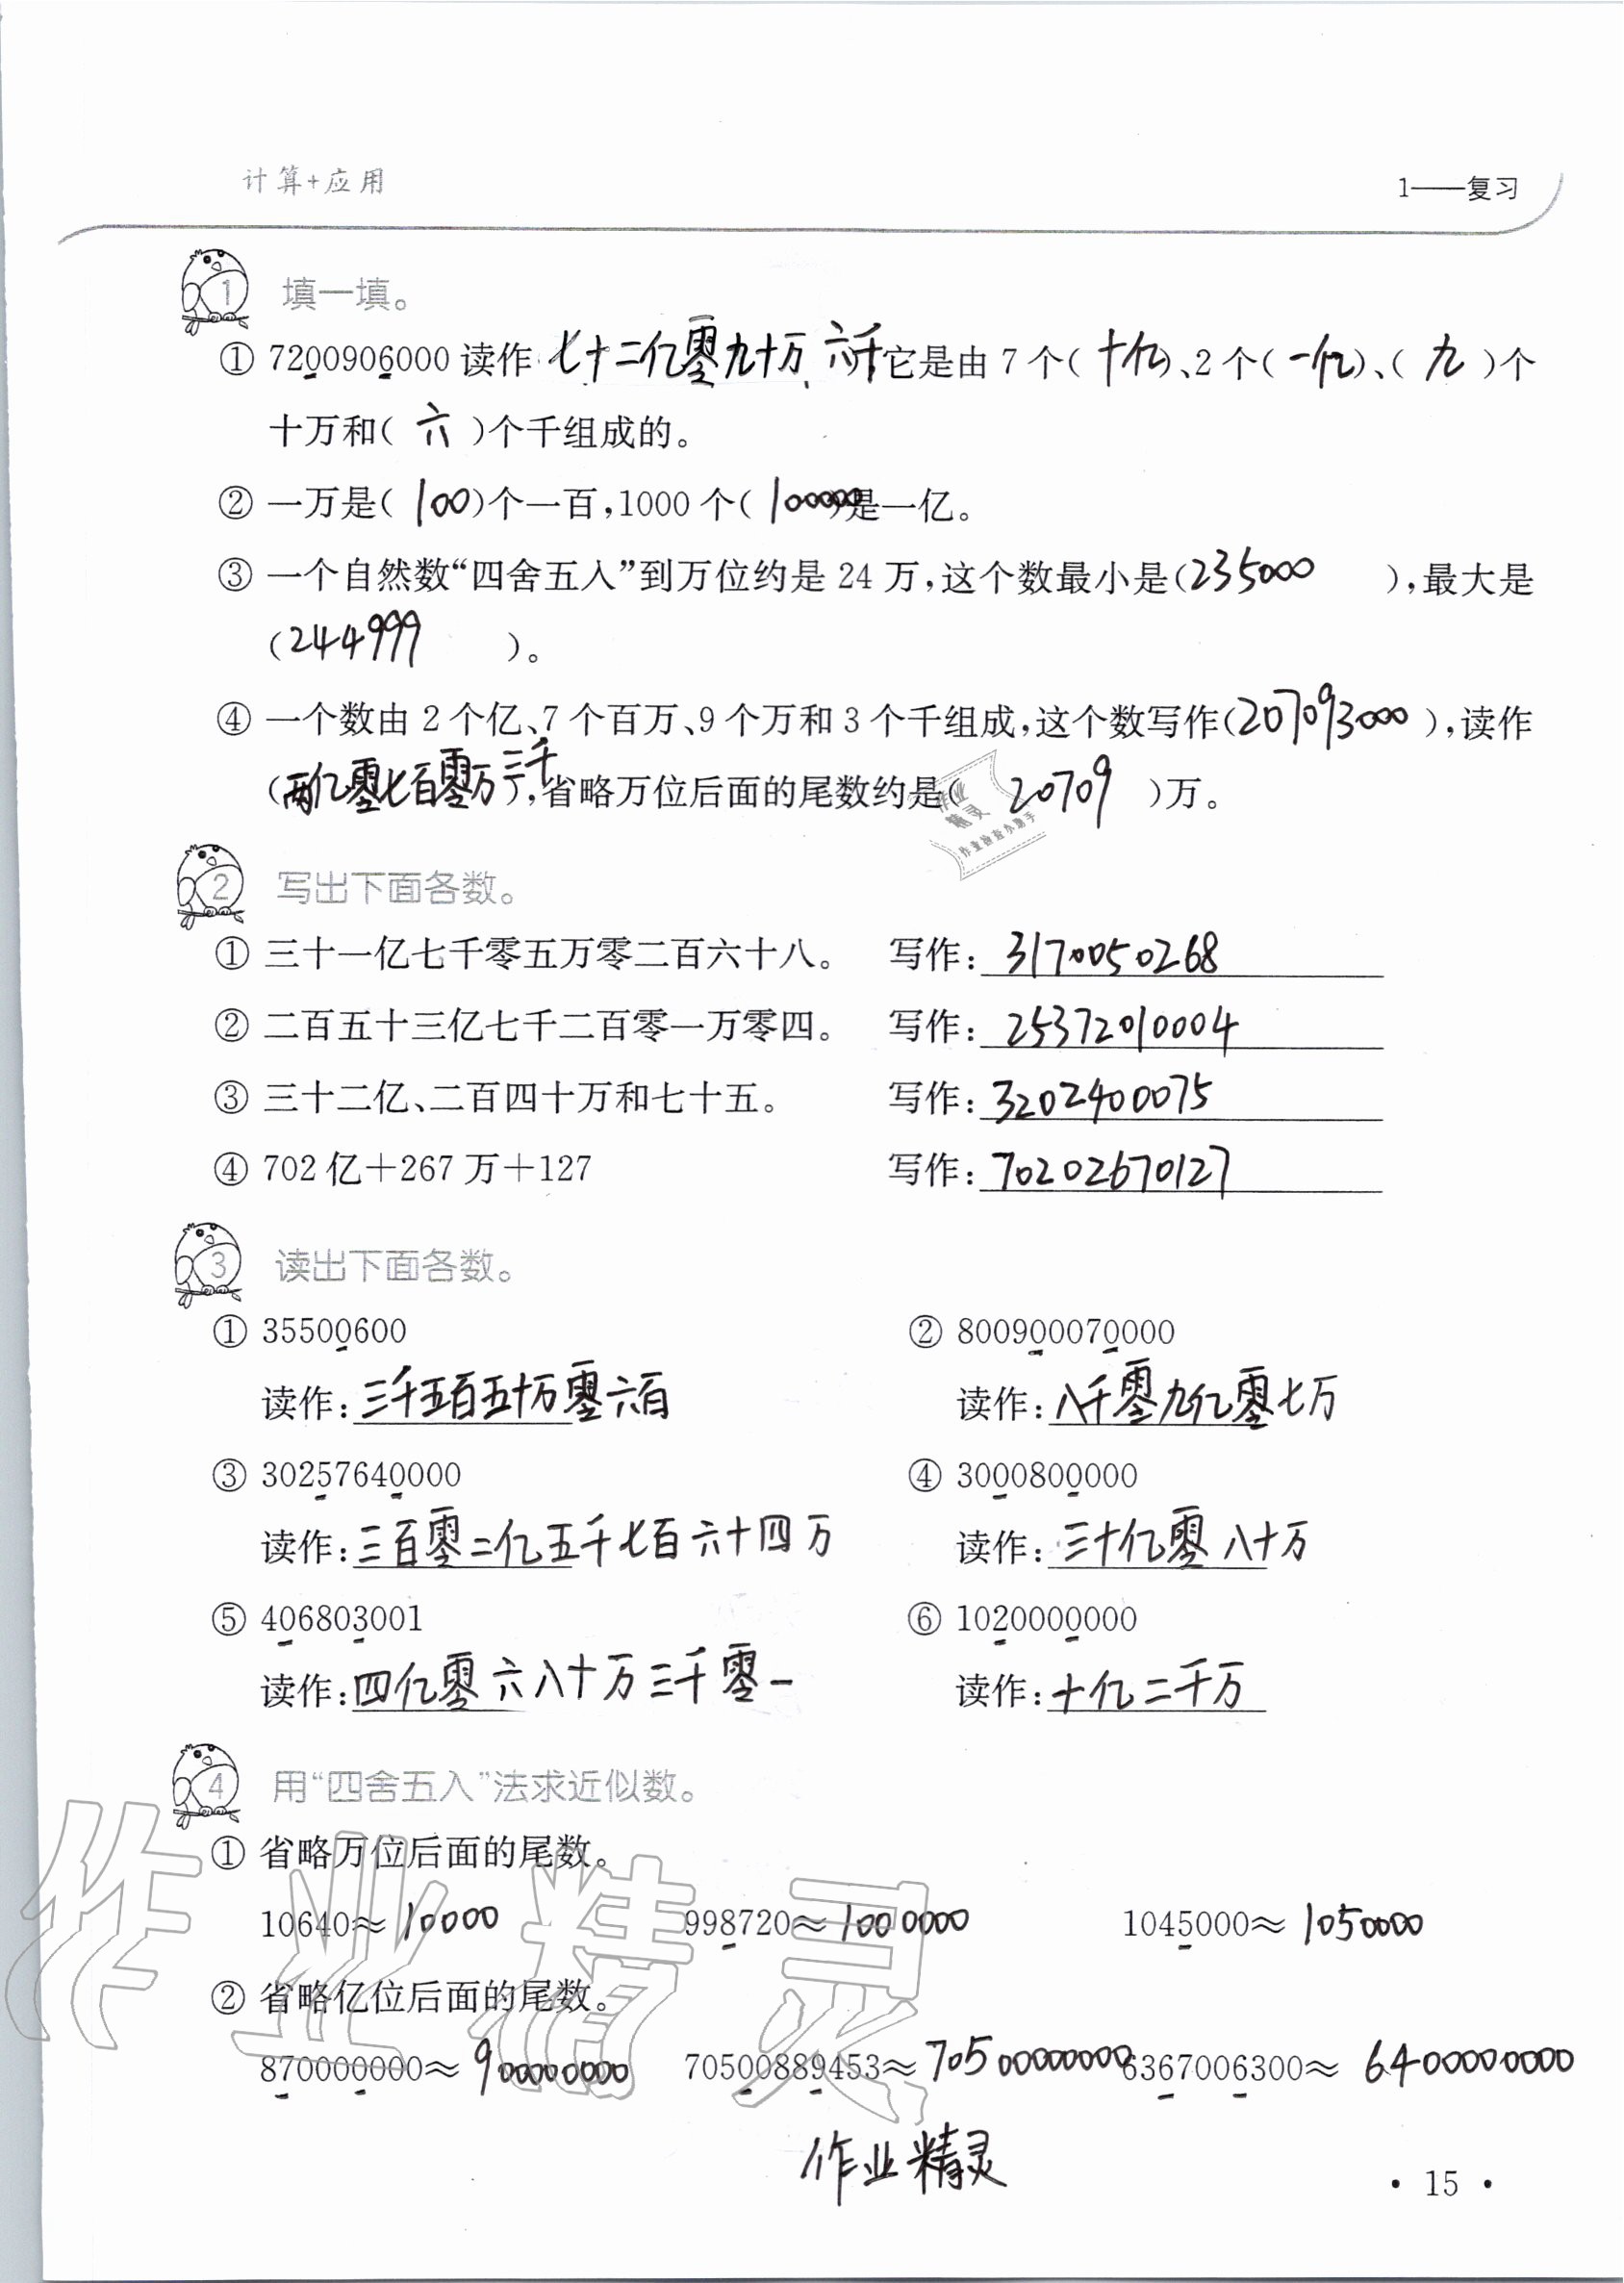 计算+应用
1——复习
1 填一填。
① 7200906000读作 七十二亿零九十万六千 它是由7个(十亿)、2个(一亿)、(九)个
十万和(六)个千组成的。
② 一万是(100)个一百,1000个(100000)是一亿。
③ 一个自然数“四舍五入”到万位约是24万,这个数最小是(235000),最大是
(244999)。
④ 一个数由2个亿、7个百万、9个万和3个千组成,这个数写作(207093000),读作
(两亿零七百零万三千),省略万位后面的尾数约是(20709)万。
作业
精灵
作业检查小助手
2 写出下面各数。
① 三十一亿七千零五万零二百六十八。 写作:3170050268
② 二百五十三亿七千二百零一万零四。 写作:25372010004
③ 三十二亿、二百四十万和七十五。 写作:3202400075
④ 702亿+267万+127 写作:70202670127
3 读出下面各数。
① 35500600 ② 800900070000
读作:三千五百五十万零六百 读作:八千零九亿零七万
③ 30257640000 ④ 3000800000
读作:三百零二亿五千七百六十四万 读作:三十亿零八十万
⑤ 406803001 ⑥ 1020000000
读作:四亿零六八十万三千零一 读作:十亿二千万
4 用“四舍五入”法求近似数。
① 省略万位后面的尾数。
10640≈10000 998720≈1000000 1045000≈1050000
② 省略亿位后面的尾数。
870000000≈900000000 70500889453≈70500000000 6367006300≈6400000000
作业精灵
作业精灵
·15·